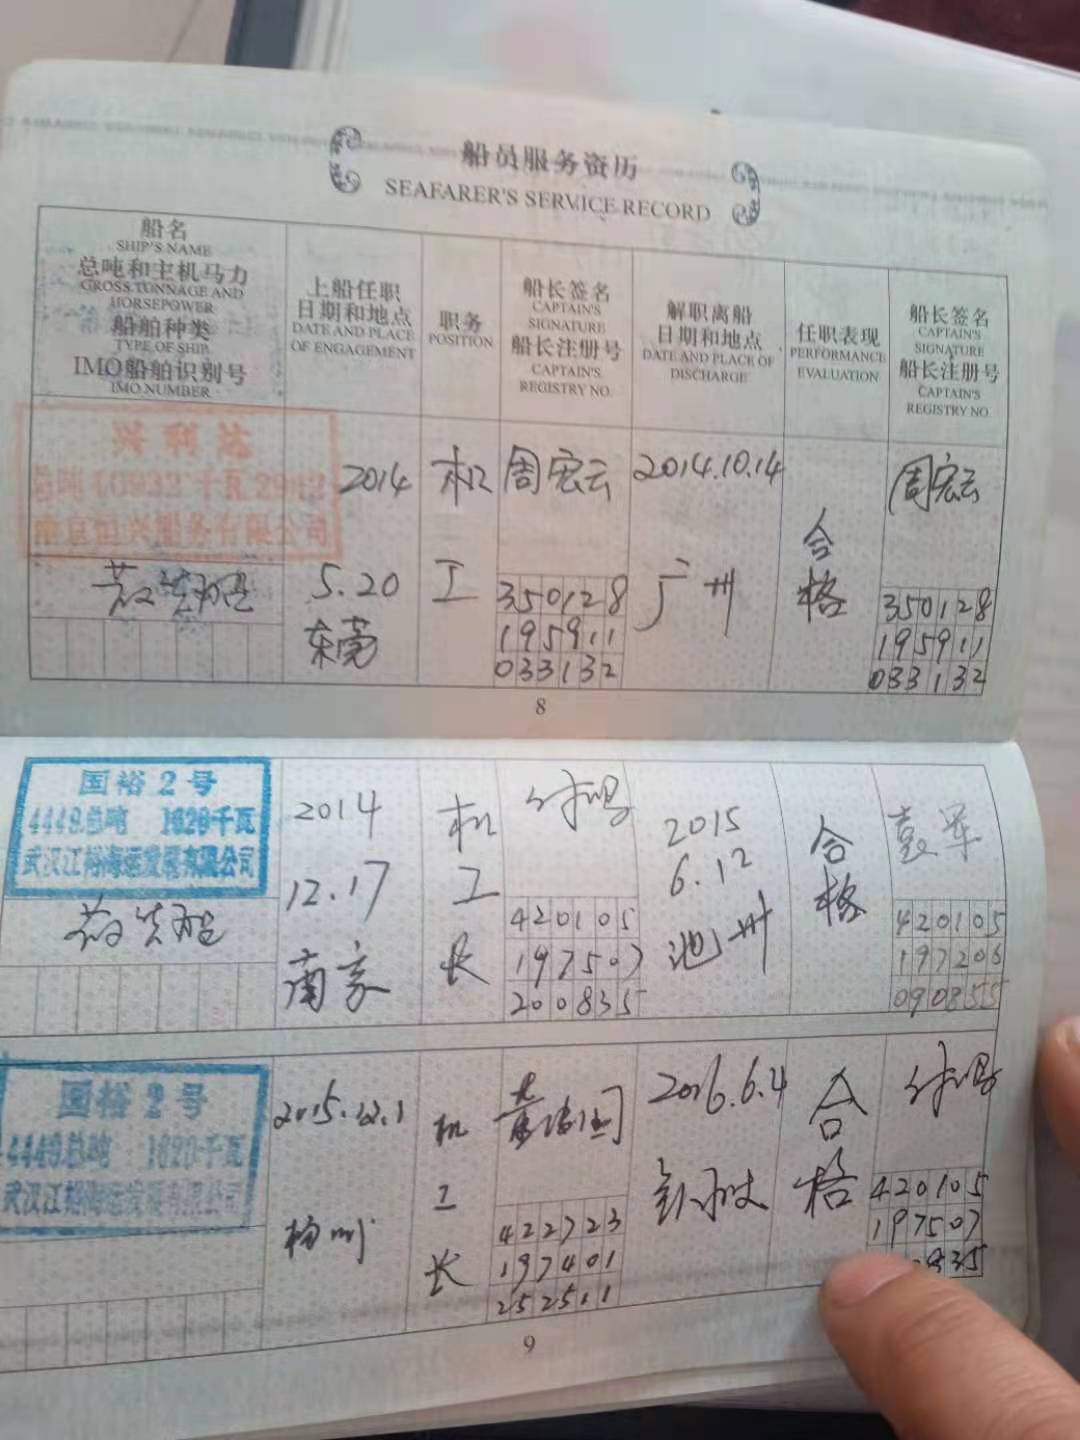 船员服务资历
SEAFARER'S SERVICE RECORD
船名
SHIP'S NAME
总吨和主机马力
GROSS TONNAGE AND
HORSEPOWER
船舶种类
TYPE OF SHIP
IMO船舶识别号
IMO NUMBER
上船任职
日期和地点
DATE AND PLACE
OF ENGAGEMENT
职务
POSITION
船长签名
CAPTAIN'S
SIGNATURE
船长注册号
CAPTAIN'S
REGISTRY NO.
解职离船
日期和地点
DATE AND PLACE OF
DISCHARGE
任职表现
PERFORMANCE
EVALUATION
船长签名
CAPTAIN'S
SIGNATURE
船长注册号
CAPTAIN'S
REGISTRY NO.
兴利达
总吨 10932 千瓦 2942
南京恒兴船务有限公司
散货船
2014
5.20
东莞
机
工
周宏云
350128
195911
033132
2014.10.14
广州
合
格
周宏云
350128
195911
033132
8
国裕2号
4449总吨 1620千瓦
武汉江裕海运发展有限公司
散货船
2014
12.17
南京
机
工
长
420105
197507
200835
2015
6.12
池州
合
格
袁军
420105
197206
090855
国裕2号
4449总吨 1620千瓦
武汉江裕海运发展有限公司
2015.12.1
扬州
机
工
长
422723
197401
252511
2016.6.4
合
格
420105
197507
835
9